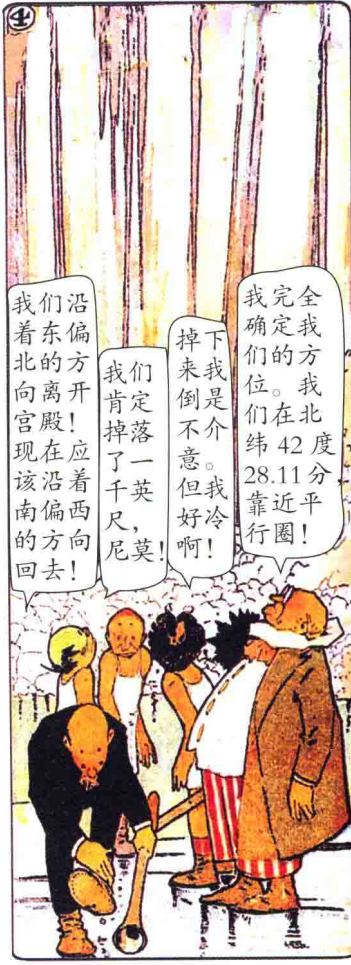 ④
我们沿
着东偏
北的方
向离开
宫殿!
现在应
该沿着
南偏西
的方向
回去!
我们
肯定
掉落
了一
千英
尺,
尼莫!
掉下
来我
倒是
不介
意。
但我
好冷
啊!
我完全
确定我
们的方
位。我
们在北
纬 42 度
28.11 分
靠近平
行圈!